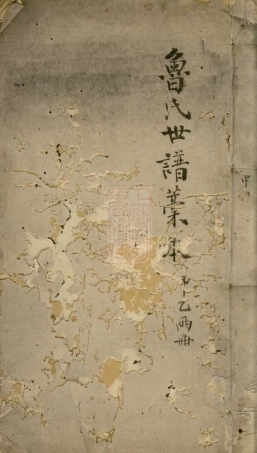 魯氏世譜藁本
乙兩冊